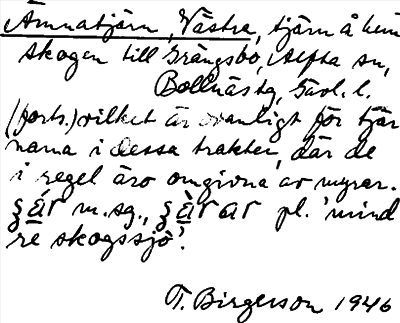 Ämnatjärn, Västra, tjärn å hem
skogen till Grängsbo, Alfta sn,
Bollnäs tg, Gävl. l.
(forts.) vilket är ovanligt för tjär
narna i dessa trakter, där de
i regel äro omgivna av myrar.
m. sg., pl. 'mind
re skogssjö'.
T. Birgerson 1946